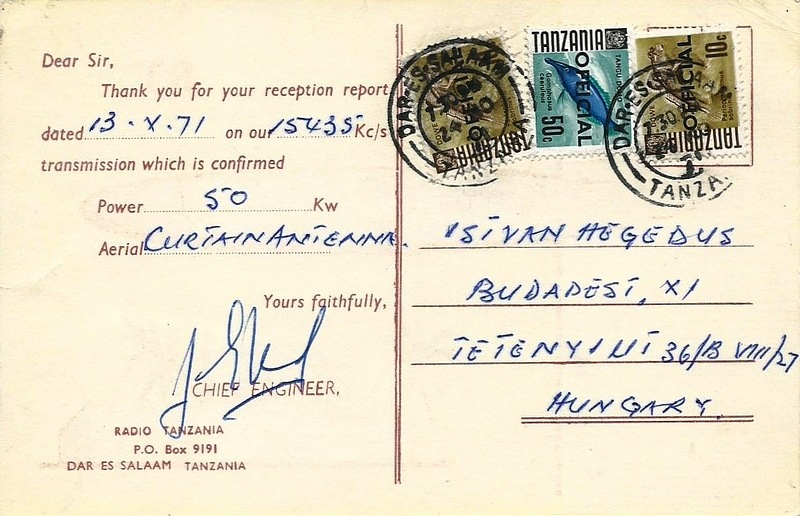 Dear Sir,
Thank you for your reception report
dated 13.X.71 on our 15435 Kc/s
transmission which is confirmed
Power 50 Kw
Aerial CURTAIN ANTENNA.
Yours faithfully,
CHIEF ENGINEER,
RADIO TANZANIA
P.O. Box 9191
DAR ES SALAAM TANZANIA
DAR-ES-SALAAM
TANZANIA
TANZANIA
50c
OFFICIAL
Gomphosus
caeruleus
10c
OFFICIAL
TANZANIA
DAR-ES-SALAAM
TANZA
ISTVAN HEGEDUS
BUDAPEST, XI
TETENYI UT 36/B VIII/27
HUNGARY.